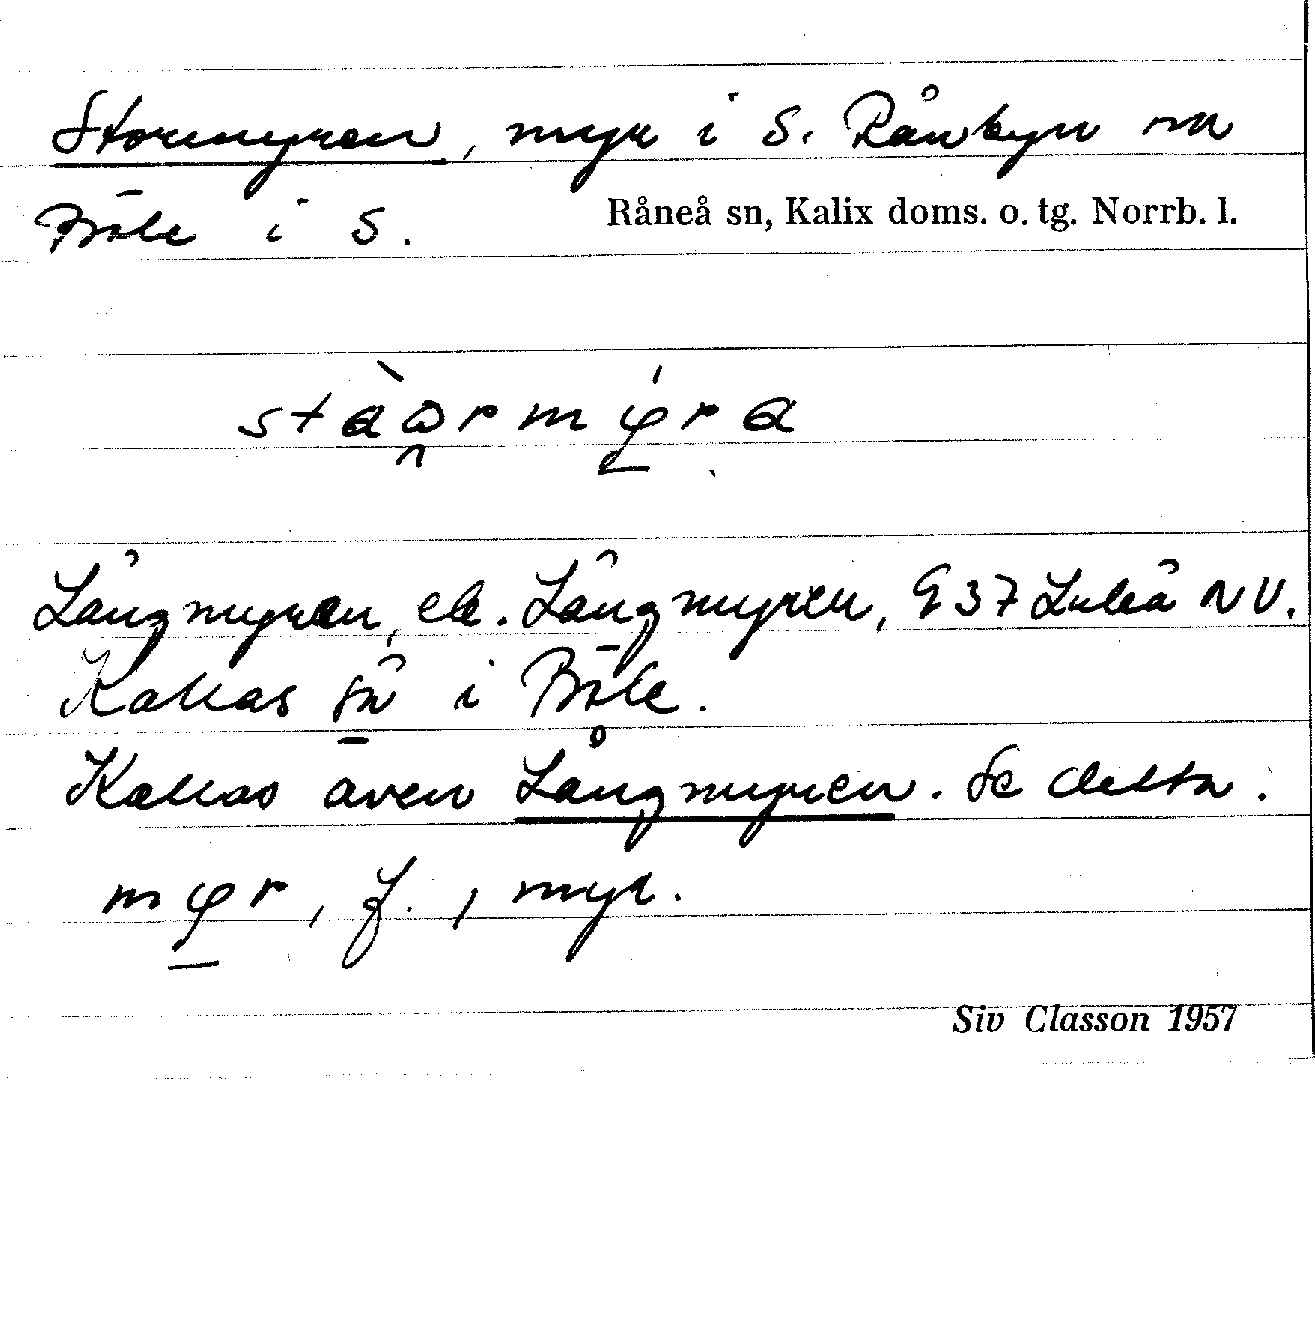 Stormyren, myr i S. Rånbyn om
Böle i S. Råneå sn, Kalix doms. o. tg. Norrb. l.
Långmyren, ek. Långmyren, G 37 Luleå NV.
Kallas så i Böle.
Kallas även Långmyren. Se detta.
Siv Classon 1957